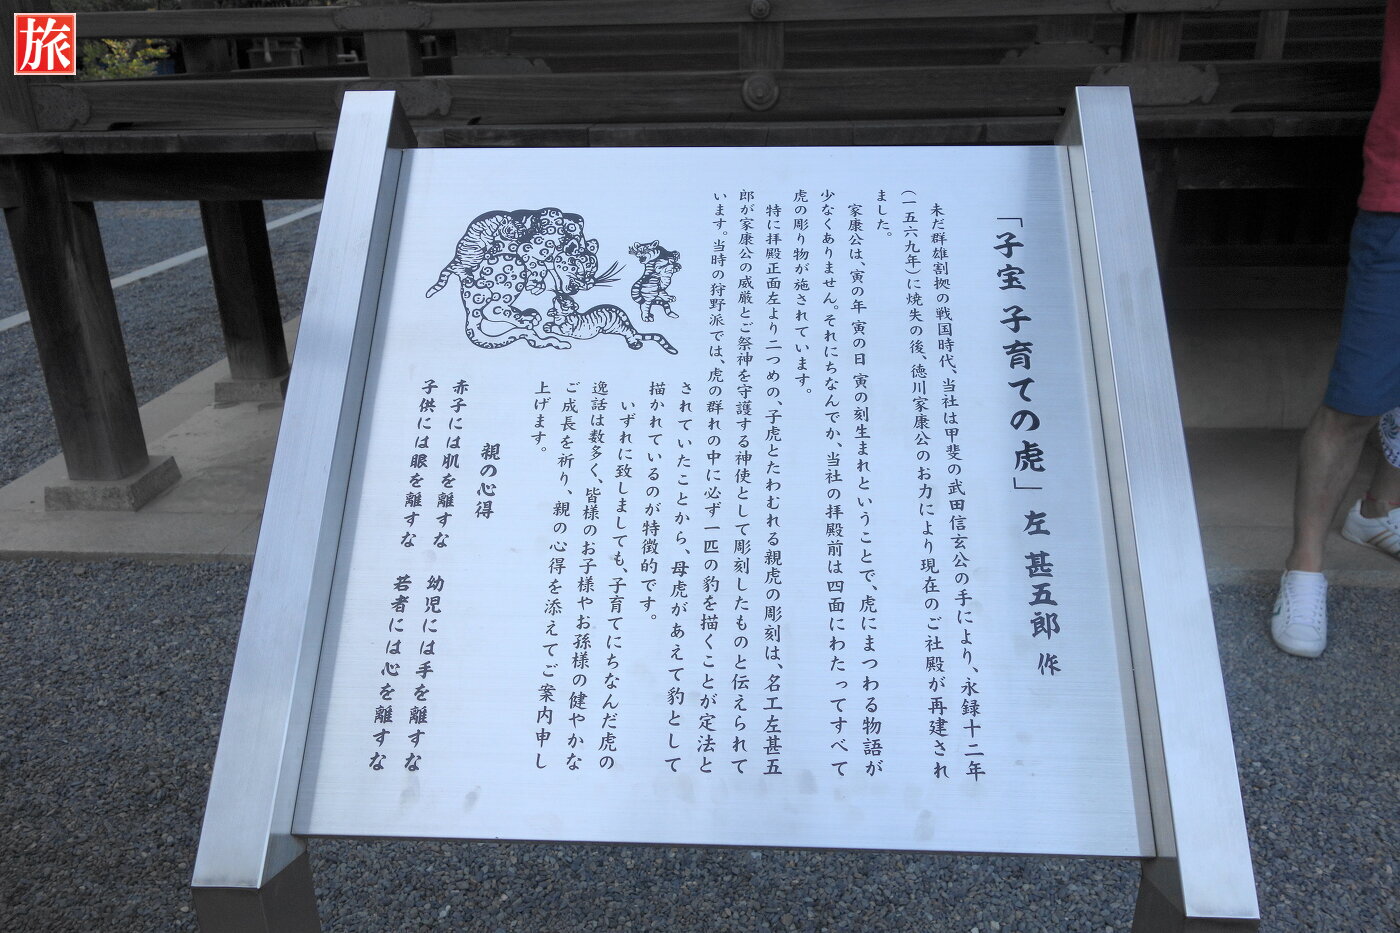 旅
「子宝 子育ての虎」 左 甚五郎 作
未だ群雄割拠の戦国時代、当社は甲斐の武田信玄公の手により、永録十二年
(一五六九年)に焼失の後、徳川家康公のお力により現在のご社殿が再建され
ました。
家康公は、寅の年 寅の日 寅の刻生まれということで、虎にまつわる物語が
少なくありません。それにちなんでか、当社の拝殿前は四面にわたってすべて
虎の彫り物が施されています。
特に拝殿正面左より二つめの、子虎とたわむれる親虎の彫刻は、名工左甚五
郎が家康公の威厳とご祭神を守護する神使として彫刻したものと伝えられて
います。当時の狩野派では、虎の群れの中に必ず一匹の豹を描くことが定法と
されていたことから、母虎があえて豹として
描かれているのが特徴的です。
いずれに致しましても、子育てにちなんだ虎の
逸話は数多く、皆様のお子様やお孫様の健やかな
ご成長を祈り、親の心得を添えてご案内申し
上げます。
親の心得
赤子には肌を離すな 幼児には手を離すな
子供には眼を離すな 若者には心を離すな